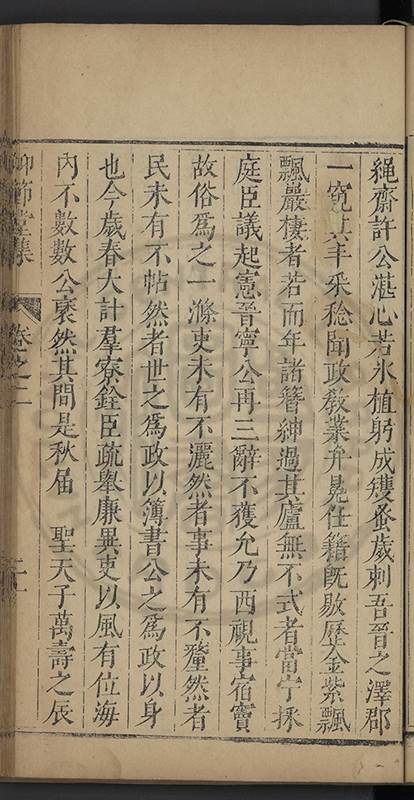 繩齋許公湛心若氷植躬成矱蚤歲刺吾晉之澤郡
一窺其丰采稔聞政教業弁冕仕籍旣敭歷金紫飄
飄巖棲者若而年諸簪紳過其廬無不式者當宁採
庭臣議起憲晉寧公再三辭不獲允乃西視事宿竇
故俗爲之一滌吏未有不灑然者事未有不釐然者
民未有不帖然者世之爲政以簿書公之爲政以身
也今歲春大計羣寮銓臣疏舉廉異吏以風有位海
內不數數公褎然其間是秋届 聖天子萬壽之辰
仰節堂集 卷之二